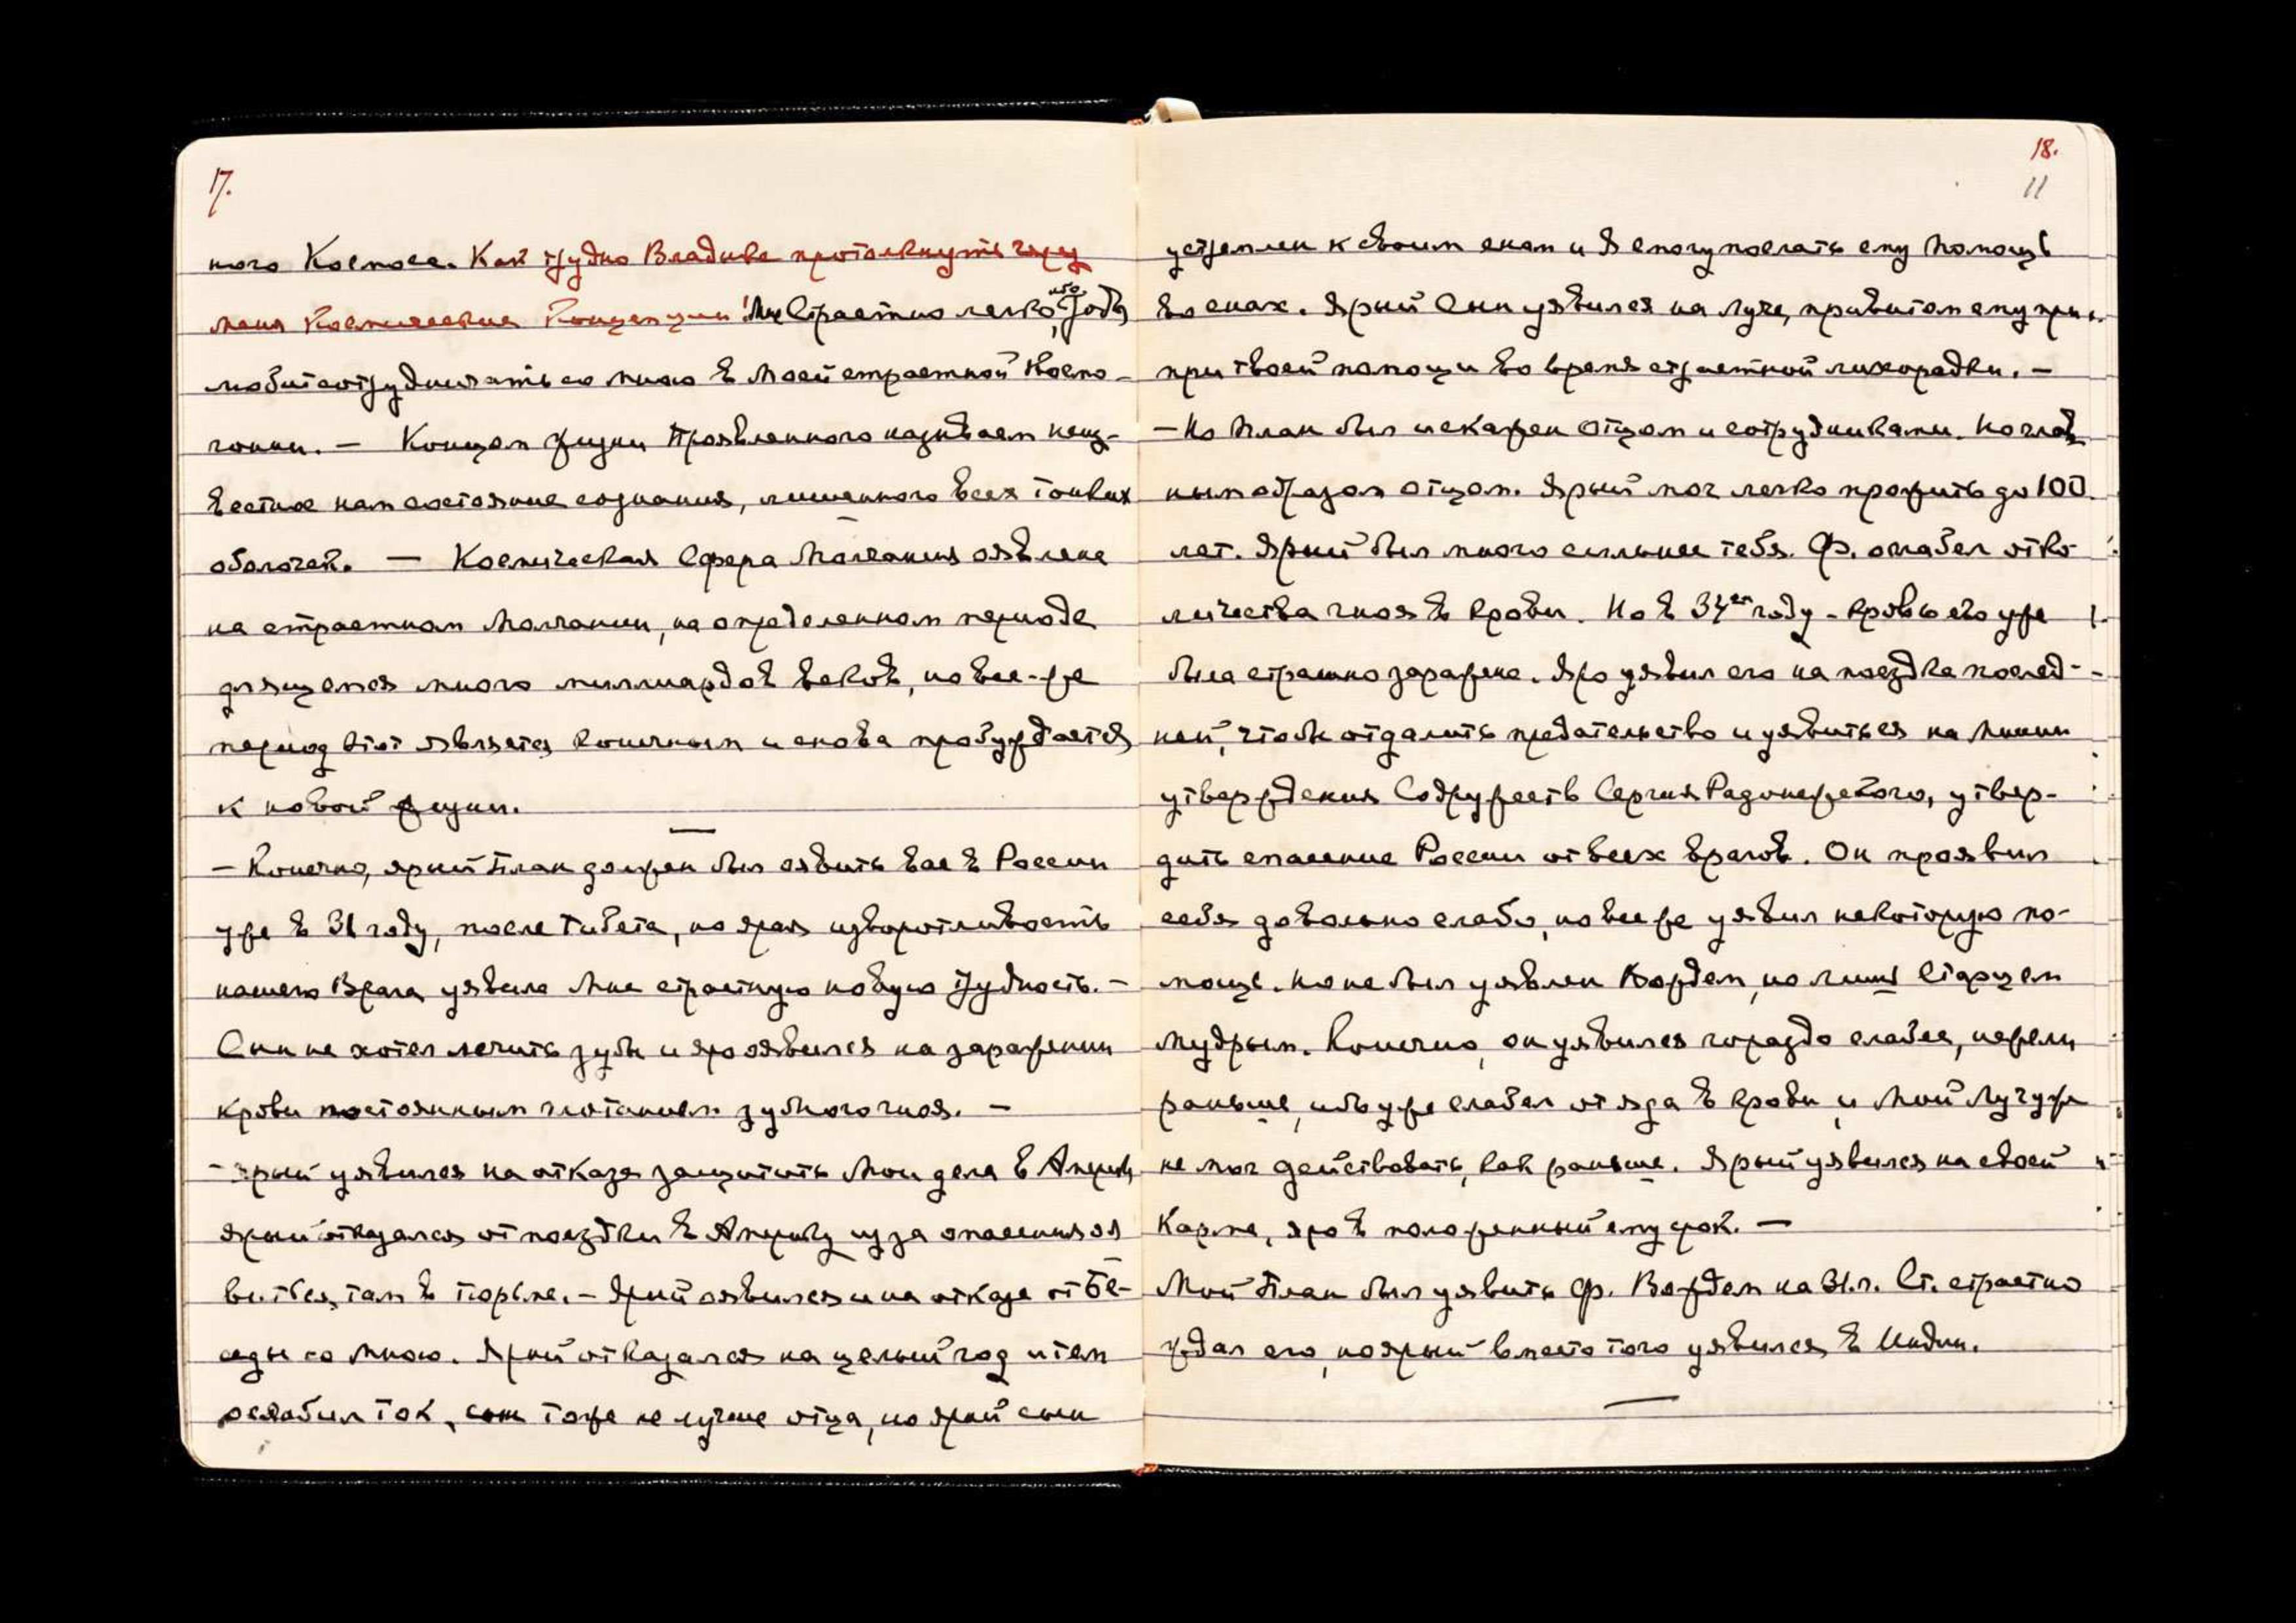 17.
ного Космоса. Как трудно Владыке протолкнуть через
меня Космические Концепции! Мне Страстно легко, ибо Тоды
любит сотрудничать со мною в Моей страстной Космо-
гонии. — Концом жизни Проявленного называем неиз-
вестное нам состояние сознания, лишенного всех тонких
оболочек. — Космическая Сфера Молчания оявлена
на страстном Молчании, на определенном периоде
длящемся много миллиардов веков, но все-же
период этот является конечным и снова пробуждается
к новой жизни.
— Конечно, ярый План должен был оявить вас в России
уже в 31 году, после Тибета, но ярая изворотливость
нашего Врага уявила Мне страстную новую трудность. —
Он не хотел лечить зубы и яро оявился на заражении
крови постоянным глотанием зубного гноя. —
— Ярый уявился на отказе защитить Мои дела в Америке
Ярый отказался от поездки в Америку из за опасения оя
виться там в тюрьме. — Ярый оявился и на отказе от Бе-
седы со Мною. Ярый отказался на целый год и тем
ослабил ток, сын тоже не лучше отца, но ярый сын
18.
11
устремлен к своим снам и Я смогу послать ему Помощь
во снах. Ярый Сын уявился на Луче, привитом ему
при твоей помощи во время страстной лихорадки. —
— Но План был искажен отцом и сотрудниками. Но глав
ным образом отцом. Ярый мог легко прожить до 100
лет. Ярый был много сильнее тебя. Ф. ослабел от ко
личества гноя в крови. Но в 34ом году - кровь его уже
была страшно заражена. Яро уявил его на поездке послед-
ней, чтобы отдалить предательство и уявиться на Линии
утверждения Содружеств Сергия Радонежского, утвер-
дить спасение России от всех врагов. Он проявил
себя довольно слабо, но все же уявил некоторую по-
мощь. Но не был уявлен Вождем, но лишь Старцем
Мудрым. Конечно, он уявился гораздо слабее, нежели
раньше, ибо уже слабел от яда в крови и Мой Луч уже
не мог действовать, как раньше. Ярый уявился на своей
Карме, яро в положенный ему срок. —
Мой План был уявить Ф. Вождем на 31.г. Ст. страстно
ждал его, но ярый вместо того уявился в Индии.